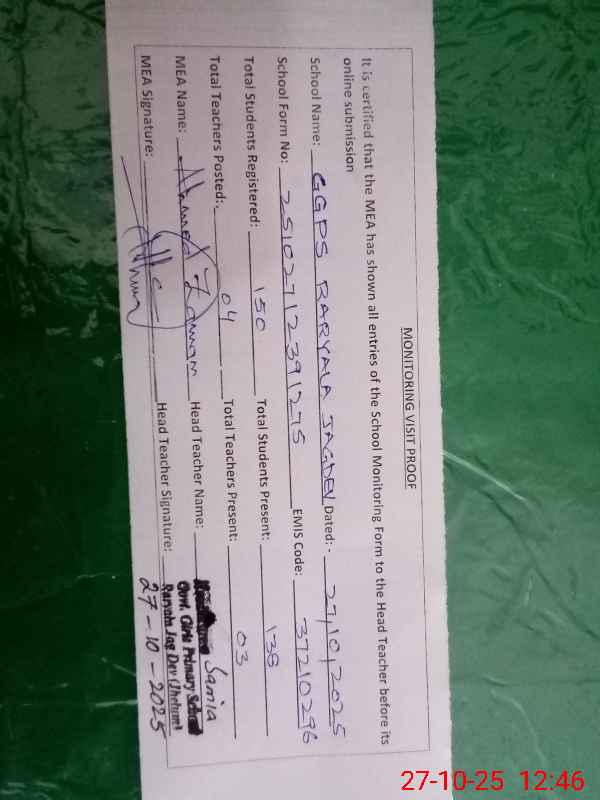 MONITORING VISIT PROOF
It is certified that the MEA has shown all entries of the School Monitoring Form to the Head Teacher before its
online submission
School Name: GGPS RARYALA JAGDEV Dated:- 27/10/2025
School Form No: 25102712391275 EMIS Code: 37210296
Total Students Registered: 150 Total Students Present: 138
Total Teachers Posted: 04 Total Teachers Present: 03
MEA Name: Ahmed Zaman Head Teacher Name: Samia
Govt. Girls Primary School
Raryala Jag Dev (Jhelum)
MEA Signature: Head Teacher Signature: 27-10-2025
27-10-25 12:46